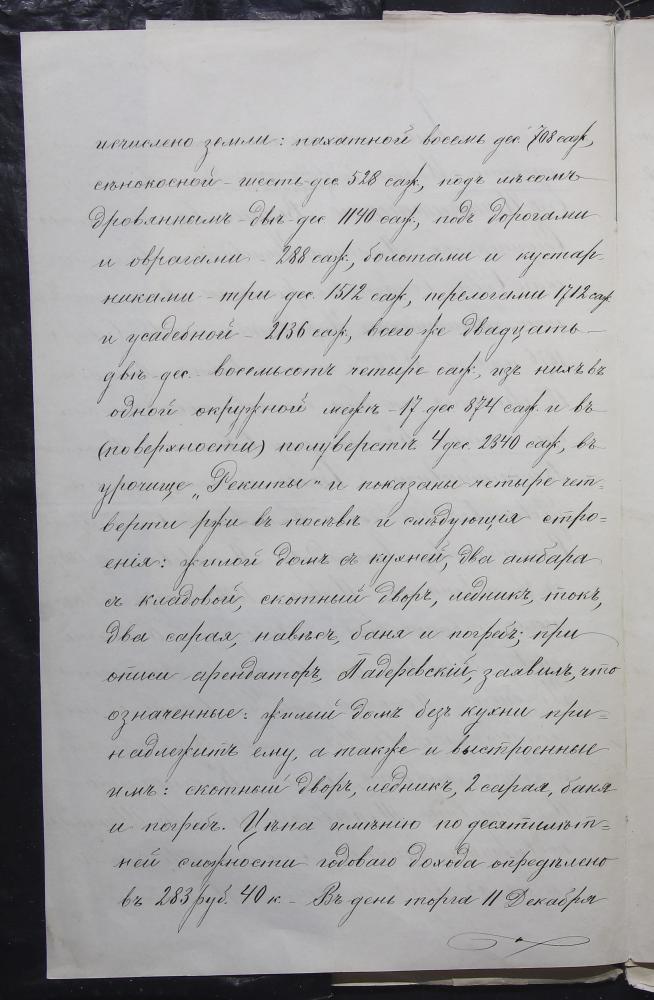 исчислено земли: пахатной восемь дес. 708 саж,
сѣнокосной – шесть дес. 528 саж, подъ лѣсомъ
дровяннымъ – двѣ – дес 1140 саж, подъ дорогами
и оврагами – 288 саж, болотами и кустар-
никами – три дес. 1512 саж, перелогами 1712 саж
и усадебной – 2136 саж, всего же двадцать
двѣ – дес. восемьсотъ четыре саж, изъ нихъ въ
одной окружной межѣ – 17 дес 874 саж и въ
(поверхности) полуверстѣ 4 дес. 2340 саж, въ
урочище „Рекиты" и показаны четыре чет-
верти ржи въ посѣвѣ и слѣдующія стро-
енія: жилой домъ съ кухней, два амбара
съ кладовой, скотный дворъ, ледникъ, токъ,
два сарая, навѣсъ, баня и погребъ; при
описи арендаторъ, Падеревскій, заявилъ, что
означенные: жилой домъ безъ кухни при-
надлежитъ ему, а также и выстроенные
имъ: скотный дворъ, ледникъ, 2 сарая, баня
и погребъ. Цѣна имѣнію по десятилѣт-
ней сложности годоваго дохода опредѣлено
въ 283 руб. 40 к – Въ день торга 11 Декабря